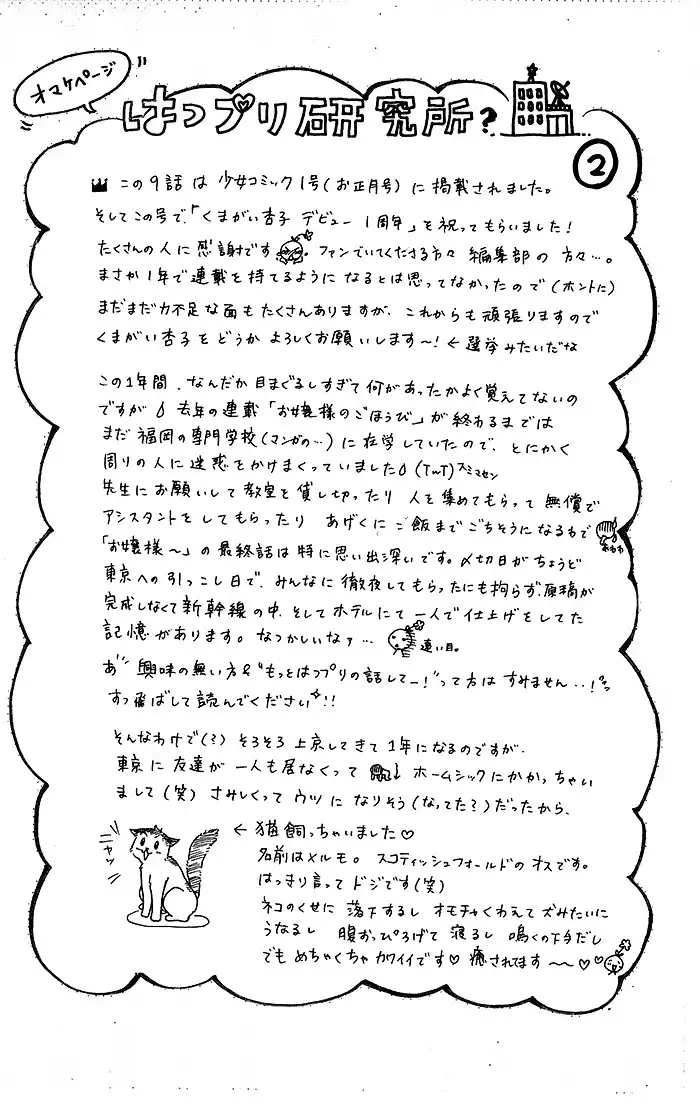 オマケページ
はつプリ研究所?
②
この9話は 少女コミック1号(お正月号)に掲載されました。
そしてこの号で、「くまがい杏子 デビュー 1周年」を祝ってもらいました!
たくさんの人に感謝です ファンでいてくださる方々 編集部の方々…。
まさか1年で連載を持てるようになるとは思ってなかったので(ホントに)
まだまだ力不足な面もたくさんありますが、これからも頑張りますので
くまがい杏子をどうかよろしくお願いします〜!←選挙みたいだな
この1年間、なんだか目まぐるしすぎて何があったかよく覚えてないの
ですが 去年の連載「お嬢様のごほうび」が終わるまでは
まだ福岡の専門学校(マンガの…)に在学していたので、とにかく
周りの人に迷惑をかけまくっていました(TωT)スミマセン
先生にお願いして教室を貸し切ったり 人を集めてもらって無償で
アシスタントをしてもらったり あげくにご飯までごちそうになるわで
おわわ
「お嬢様〜」の最終話は特に思い出深いです。〆切日がちょうど
東京への引っこし日で、みんなに徹夜してもらったにも拘らず、原稿が
完成しなくて新幹線の中、そしてホテルにて一人で仕上げをしてた
記憶があります。なつかしいなァ…
遠い目。
あ"興味の無い方&"もっとはつプリの話してー!"って方はすみません..!
すっ飛ばして読んでください!!
そんなわけで(?) そろそろ上京してきて1年になるのですが、
東京に友達が一人も居なくって ↓ ホームシックにかかっちゃい
まして(笑) さみしくってウツになりそう(なってた?)だったから、
ニャッ
←猫飼っちゃいました♡
名前はメルモ。スコティッシュフォールドのオスです。
はっきり言ってドジです(笑)
ネコのくせに 落下するし オモチャくわえて犬みたいに
うなるし 腹おっぴろげて寝るし 鳴くの下手だし
でもめちゃくちゃカワイイです♡ 癒されてます〜〜♡♡